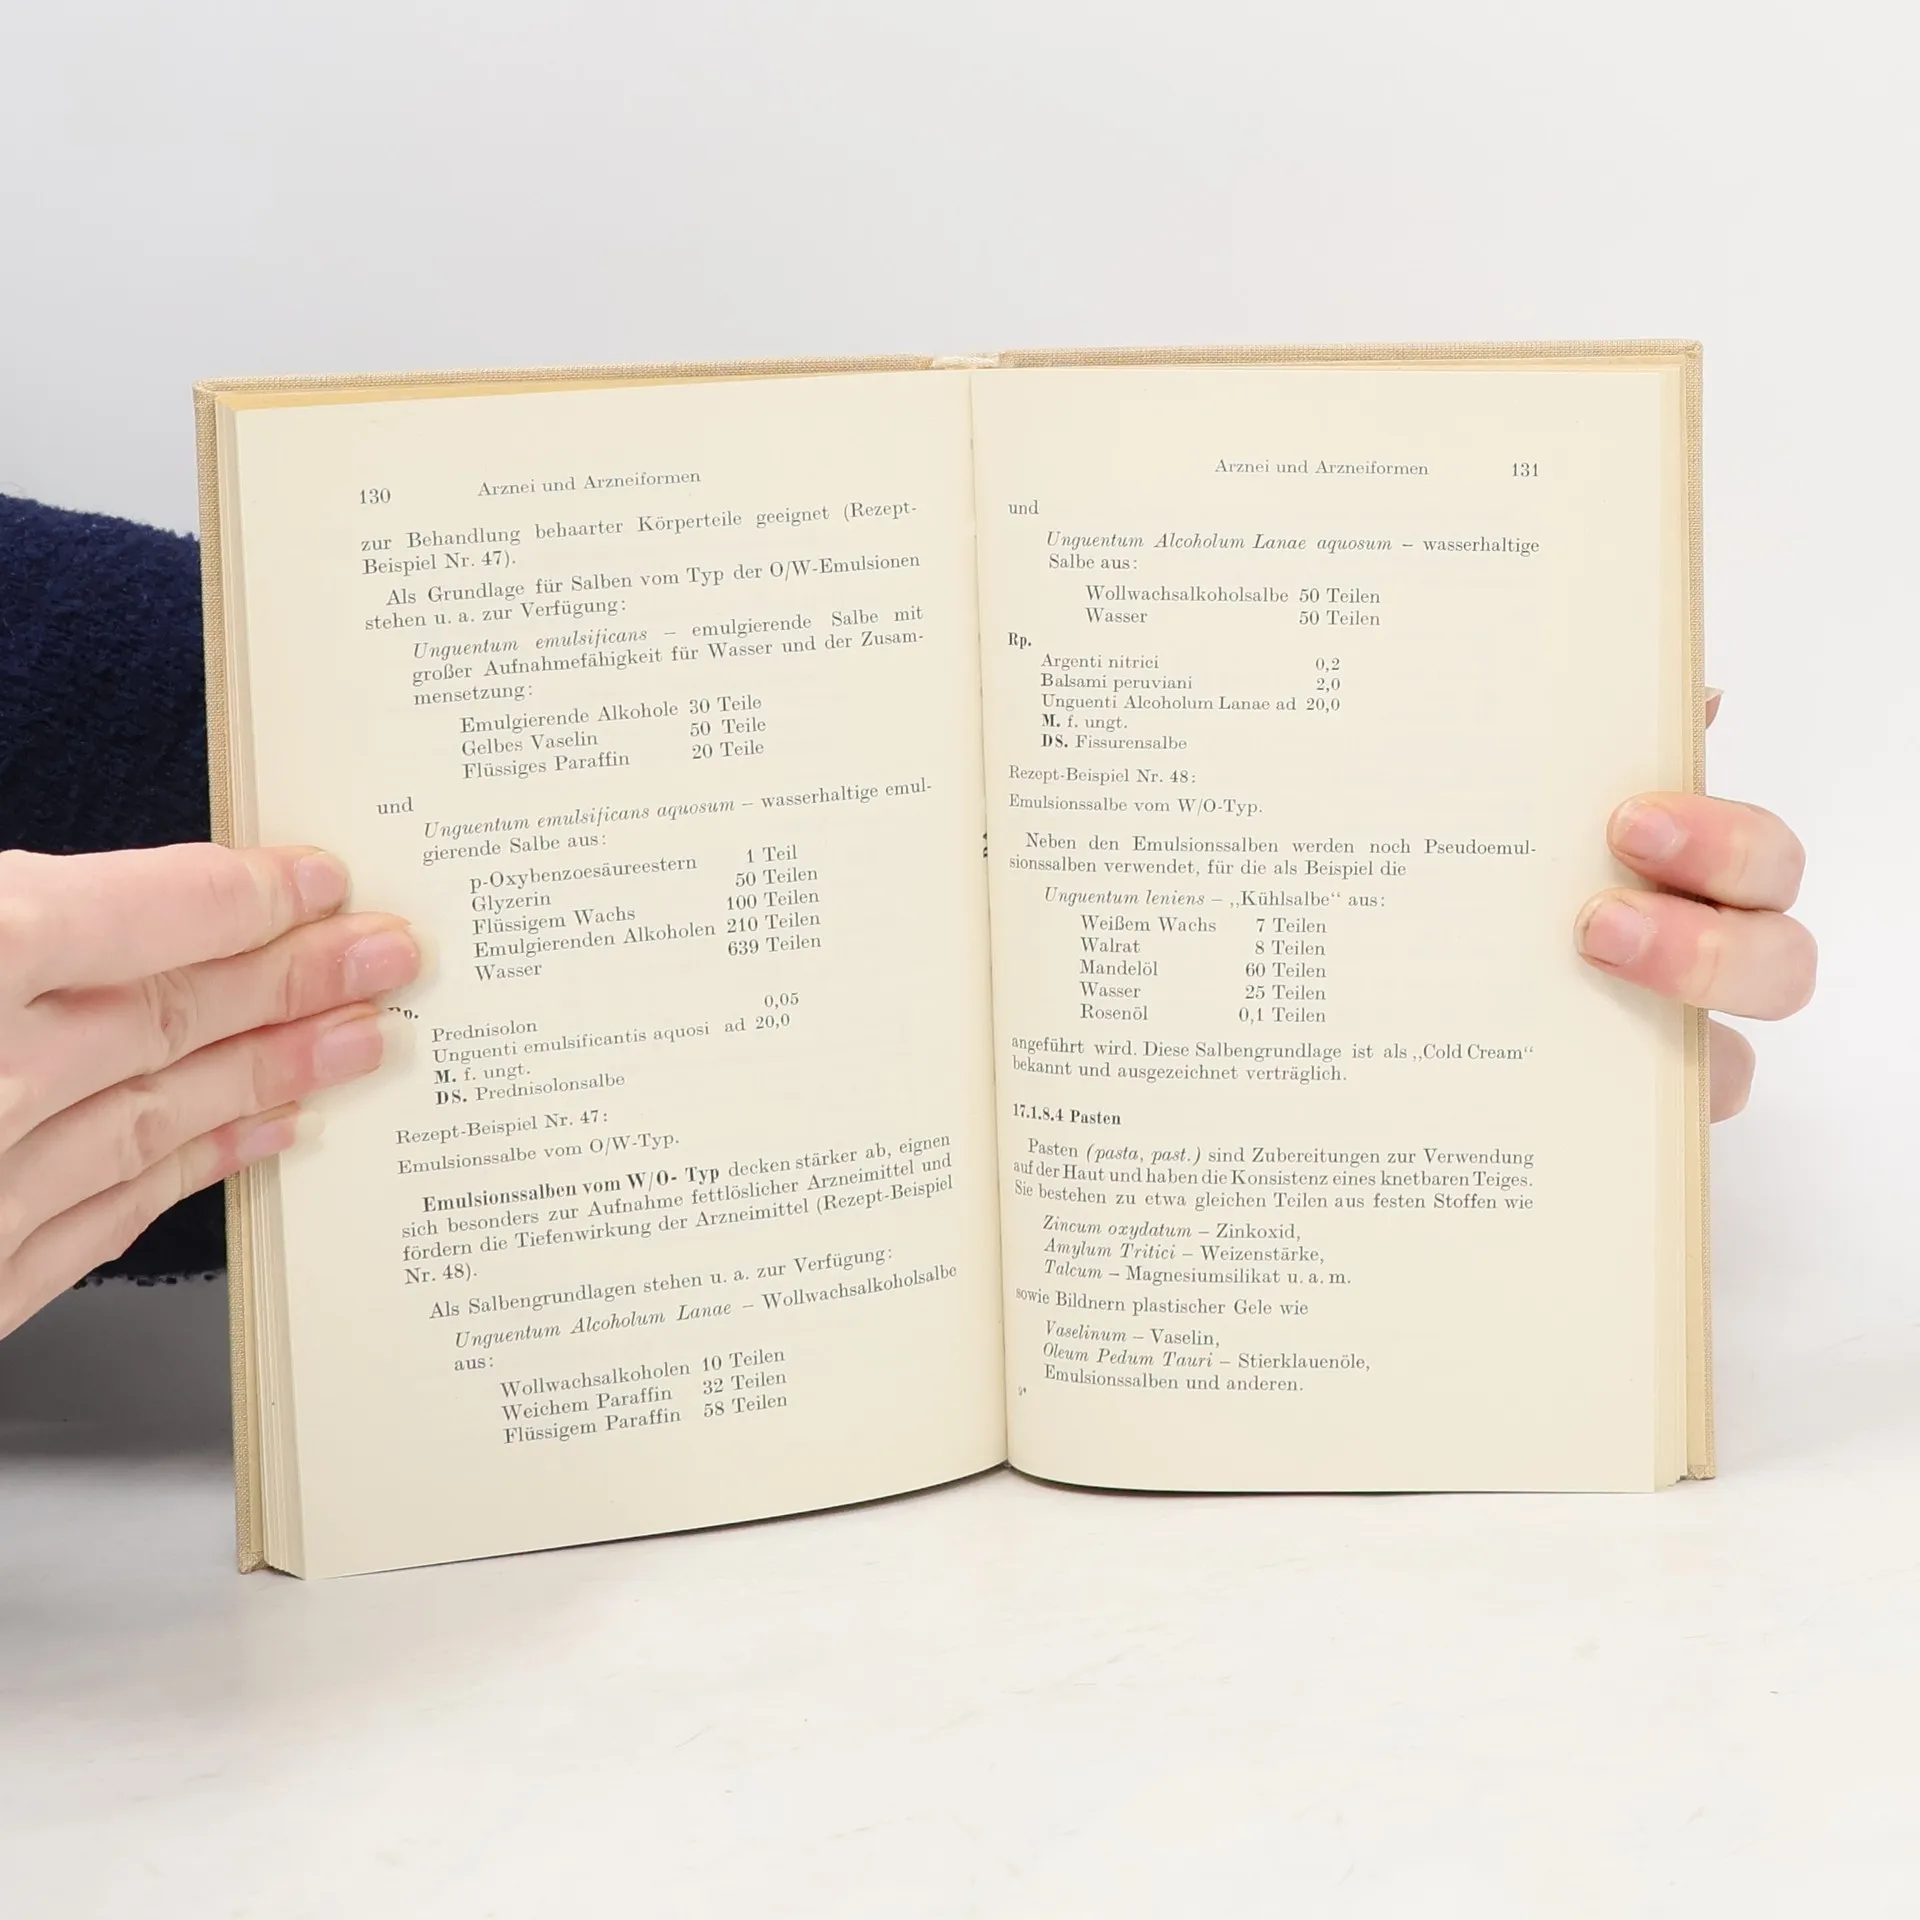 130 Arznei und Arzneiformen
zur Behandlung behaarter Körperteile geeignet (Rezept-
Beispiel Nr. 47).
Als Grundlage für Salben vom Typ der O/W-Emulsionen
stehen u. a. zur Verfügung:
Unguentum emulsificans – emulgierende Salbe mit
großer Aufnahmefähigkeit für Wasser und der Zusam-
mensetzung:
Emulgierende Alkohole 30 Teile
Gelbes Vaselin 50 Teile
Flüssiges Paraffin 20 Teile
und
Unguentum emulsificans aquosum – wasserhaltige emul-
gierende Salbe aus:
p-Oxybenzoesäureestern 1 Teil
Glyzerin 50 Teilen
Flüssigem Wachs 100 Teilen
Emulgierenden Alkoholen 210 Teilen
Wasser 639 Teilen
Prednisolon 0,05
Unguenti emulsificantis aquosi ad 20,0
M. f. ungt.
DS. Prednisolonsalbe
Rezept-Beispiel Nr. 47:
Emulsionssalbe vom O/W-Typ.
Emulsionssalben vom W/O- Typ decken stärker ab, eignen
sich besonders zur Aufnahme fettlöslicher Arzneimittel und
fördern die Tiefenwirkung der Arzneimittel (Rezept-Beispiel
Nr. 48).
Als Salbengrundlagen stehen u. a. zur Verfügung:
Unguentum Alcoholum Lanae – Wollwachsalkoholsalbe
aus:
Wollwachsalkoholen 10 Teilen
Weichem Paraffin 32 Teilen
Flüssigem Paraffin 58 Teilen
Arznei und Arzneiformen 131
und
Unguentum Alcoholum Lanae aquosum – wasserhaltige
Salbe aus:
Wollwachsalkoholsalbe 50 Teilen
Wasser 50 Teilen
Rp.
Argenti nitrici 0,2
Balsami peruviani 2,0
Unguenti Alcoholum Lanae ad 20,0
M. f. ungt.
DS. Fissurensalbe
Rezept-Beispiel Nr. 48:
Emulsionssalbe vom W/O-Typ.
Neben den Emulsionssalben werden noch Pseudoemul-
sionssalben verwendet, für die als Beispiel die
Unguentum leniens – „Kühlsalbe“ aus:
Weißem Wachs 7 Teilen
Walrat 8 Teilen
Mandelöl 60 Teilen
Wasser 25 Teilen
Rosenöl 0,1 Teilen
angeführt wird. Diese Salbengrundlage ist als „Cold Cream“
bekannt und ausgezeichnet verträglich.
17.1.8.4 Pasten
Pasten (pasta, past.) sind Zubereitungen zur Verwendung
auf der Haut und haben die Konsistenz eines knetbaren Teiges.
Sie bestehen zu etwa gleichen Teilen aus festen Stoffen wie
Zincum oxydatum – Zinkoxid,
Amylum Tritici – Weizenstärke,
Talcum – Magnesiumsilikat u. a. m.
sowie Bildnern plastischer Gele wie
Vaselinum – Vaselin,
Oleum Pedum Tauri – Stierklauenöle,
Emulsionssalben und anderen.
9*